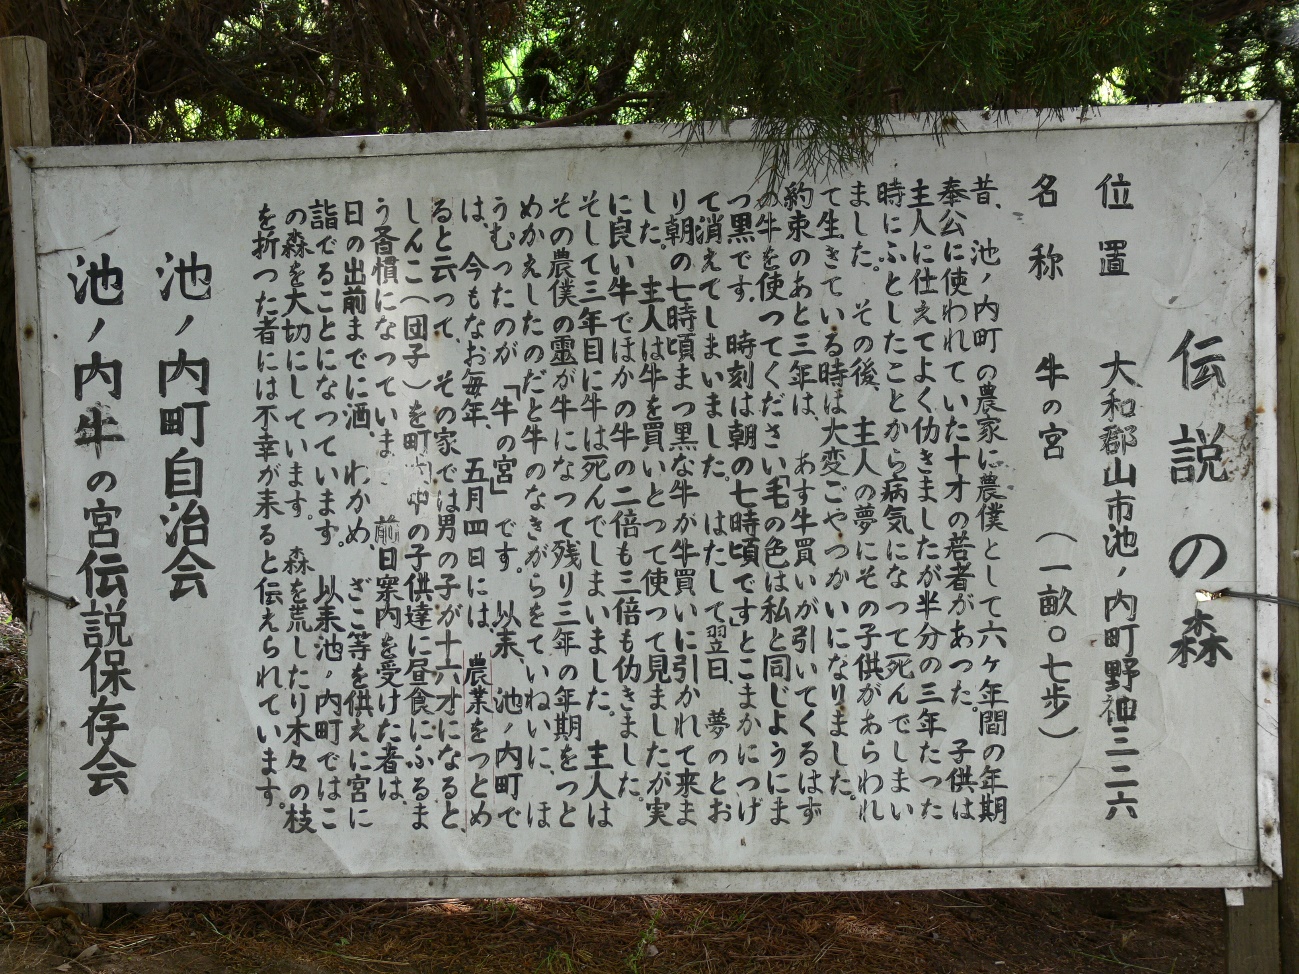 伝説の森
位置 大和郡山市池ノ内町野神三二六
名称 牛の宮 (一畝〇七歩)
昔、池ノ内町の農家に農僕として六ヶ年間の年期
奉公に使われていた十才の若者があった。子供は
主人に仕えてよく仂きましたが半分の三年たった
時にふとしたことから病気になって死んでしまい
ました。その後、主人の夢にその子供があらわれ
て生きている時は大変ごやっかいになりました。
約束のあと三年は、あす牛買いが引いてくるはず
の牛を使ってください「毛の色は私と同じようにま
っ黒です。時刻は朝の七時頃です」とこまかにつげ
て消えてしまいました。はたして翌日、夢のとお
り朝の七時頃まっ黒な牛が牛買いに引かれて来ま
した。主人は牛を買いとって使って見ましたが実
に良い牛でほかの牛の二倍も三倍も仂きました。
そして三年目に牛は死んでしまいました。主人は
その農僕の霊が牛になって残り三年の年期をつと
めかえしたのだと牛のなきがらをていねいに、ほ
うむったのが「牛の宮」です。以来、池ノ内町で
は、今もなお毎年、五月四日には、農業をつとめ
ると云って、その家では男の子が十六才になると、
しんこ(団子)を町内中の子供達に昼食にふるま
う習慣になっていま 前日案内を受けた者は、
日の出前までに酒、わかめ、ざこ等を供えに宮に
詣でることになっています。以来池ノ内町ではこ
の森を大切にしています。森を荒したり木々の枝
を折った者には不幸が来ると伝えられています。
池ノ内町自治会
池ノ内牛の宮伝説保存会